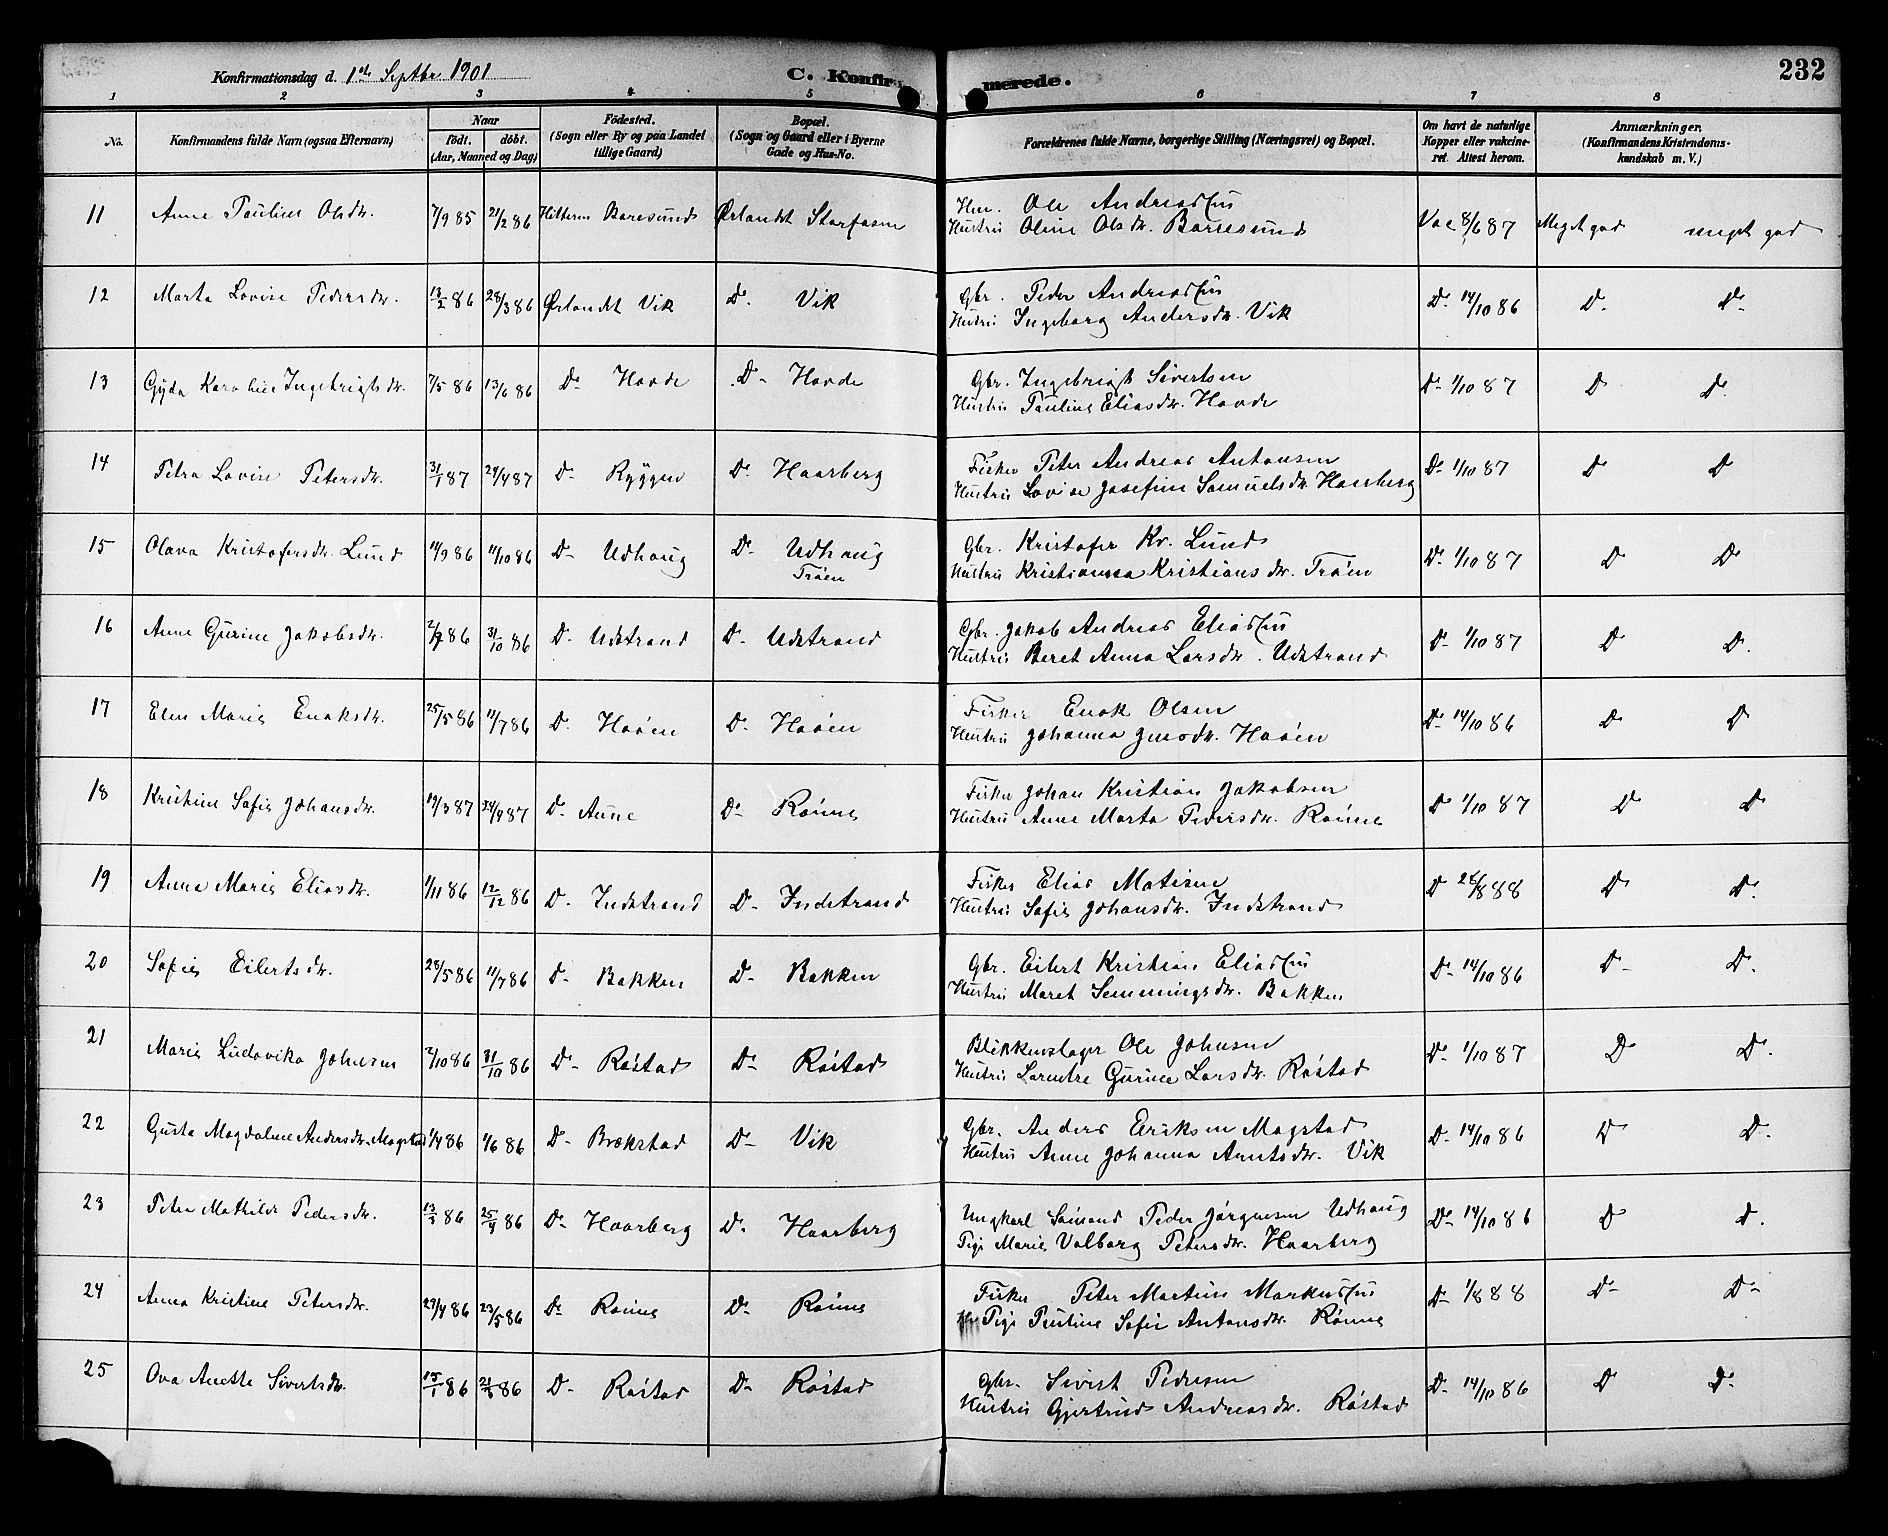 Konfirmationsdag d. 1ste Septbr 1901 C. Konfirmerede. 232
1 2 3 4 5 6 7 8
No. Konfirmandens fulde Navn (ogsaa Efternavn) Naar født. døbt. (Aar, Maaned og Dag) Fødested. (Sogn eller By og paa Landet tillige Gaard) Bopæl. (Sogn og Gaard eller i Byerne Gade og Hus-No. Forældrenes fulde Navne, borgerlige Stilling (Næringsvei) og Bopæl. Om havt de naturlige Kopper eller vakcineret. Attest herom. Anmærkninger. (Konfirmandens Kristendomskundskab m. V.)
11 Anne Pauline Olsdr. 7/9 85 21/2 86 Hitteren Baresund Ørlandet Ole Andreassen
Hustru Oline Olsdr. Barresund Vac 8/6 87 Meget god meget god
12 Marta Lovise Pedersdr. 13/2 86 28/3 86 Ørlandet Vik D. Vik Gbr. Peder Andreassen
Hustru Ingeborg Andersdr. Vik Do 14/10 86 D. D.
13 Gyda Karoline Ingebrigtsdr. 7/5 86 13/6 86 D. Hovde D. Hovde Gbr. Ingebrigt Sivertsen
Hustru Pauline Eliasdr. Hovde D. 1/10 87 D D.
14 Petra Lovise Petersdr. 31/1 87 24/4 87 D. Ryggen D. Haarberg Fisker Peter Andreas Antonsen
Hustru Lovise Josefine Samuelsdr. Haarberg D. 1/10 87 D D
15 Olava Kristofersdr. Lund 14/9 86 11/10 86 D. Udhaug D. Udhaug Trøen Gbr. Kristofer Kr. Lund
Hustru Kristianna Kristiansdr. Trøen D. 1/10 87 D D
16 Anne Gurine Jakobsdr. 31/10 86 D. Udstrand D. Udstrand Gbr. Jakob Andreas Eliassen
Hustru Beret Anna Larsdr. Udstrand D. 1/10 87 D D.
17 Elen Marie Enoksdr. 25/5 86 11/7 86 D. Haøen D. Haøen Fisker Enok Olsen
Hustru Johanna Jensdr. Haøen D. 14/10 86 D D
18 Kristine Sofie Johansdr. 19/3 87 24/4 87 D. Aune D. Rønne Fisker Johan Kristian Jakobsen
Hustru Anne Marta Pedersdr. Rønne D 1/10 87 D D
19 Anna Marie Eliasdr. 1/11 86 12/12 86 D. Indstrand D. Indstrand Fisker Elias Matisen
Hustru Sofie Johansdr. Indstrand D 28/8 88 D D.
20 Sofie Eilertsdr. 28/5 86 11/7 86 D. Bakken D. Bakken Gbr. Eilert Kristian Eliassen
Hustru Maret Semmingsdr. Bakken D. 14/10 86 D. D.
21 Marie Ludovika Johnsen 2/10 86 31/10 86 D. Røstad D. Røstad Blikkenslager Ole Johnsen
Hustru Lorentze Gurine Larsdr. Røstad D. 1/10 87 D D.
22 Gusta Magdalene Andersdr. Magstad 1/4 86 1/6 86 D. Brekstad D. Vik Gbr. Anders Eriksen Magstad
Hustru Anne Johanna Arntsdr. Vik D. 14/10 86 D D.
23 Petra Mathilde Pedersdr. 86 25/4 86 D. Haarberg D. Haarberg Ungkarl Sømand Peder Jørgensen Udhaug
Pige Marie Valborg Petersdr. Haarberg D. 14/10 86 D D.
24 Anna Kristine Petersdr. 27/4 86 23/5 86 D. Rønne D. Rønne Fisker Peter Martin Markussen
Pige Pauline Sofie Antonsdr. Rønne D. 1/8 88 D. D.
25 Ova Anette Sivertsdr. 15/1 86 86 D. Røstad D. Røstad Gbr. Sivert Pedersen
Hustru Gjertrud Andreasdr. Røstad D. 14/10 86 D D.